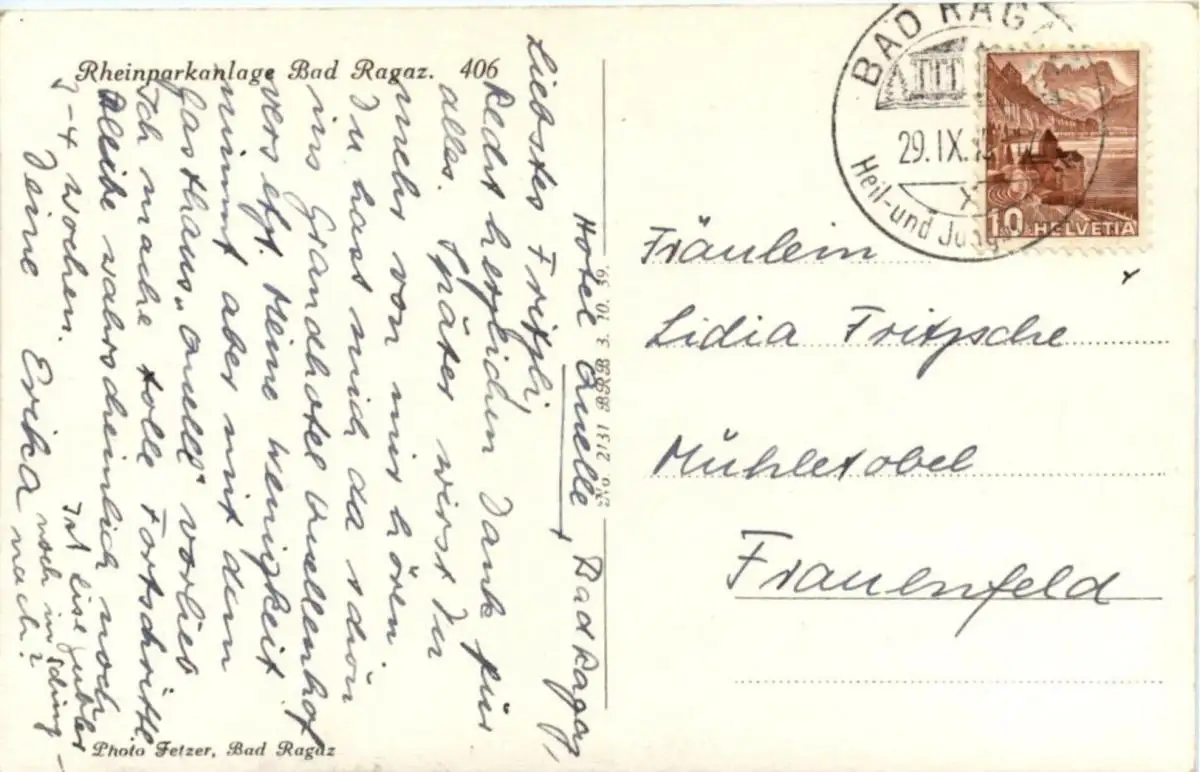 Rheinparkanlage Bad Ragaz. 406
Hotel Quelle, Bad Ragaz,
Liebstes Fritzli,
Recht herzlichen Dank für
alles. Später wirst Du
mehr von mir hören.
Du hast mich da schön
ins Grandhotel Quellenhof
versetzt. Meine Wenigkeit
nimmt aber mit dem
Gasthaus „Quelle" vorlieb
Ich mache tolle Fortschritte
bleibe wahrscheinlich noch
3-4 Wochen.
Deine Erika
Ist Lisel
noch in
nach?
Photo Fetzer, Bad Ragaz
No. 2131 BRB 3. 10. 39.
BAD RAGA
29. IX.
Heil-und Jung
10 HELVETIA
Fräulein
Lidia Fritzsche
Mühletobel
Frauenfeld